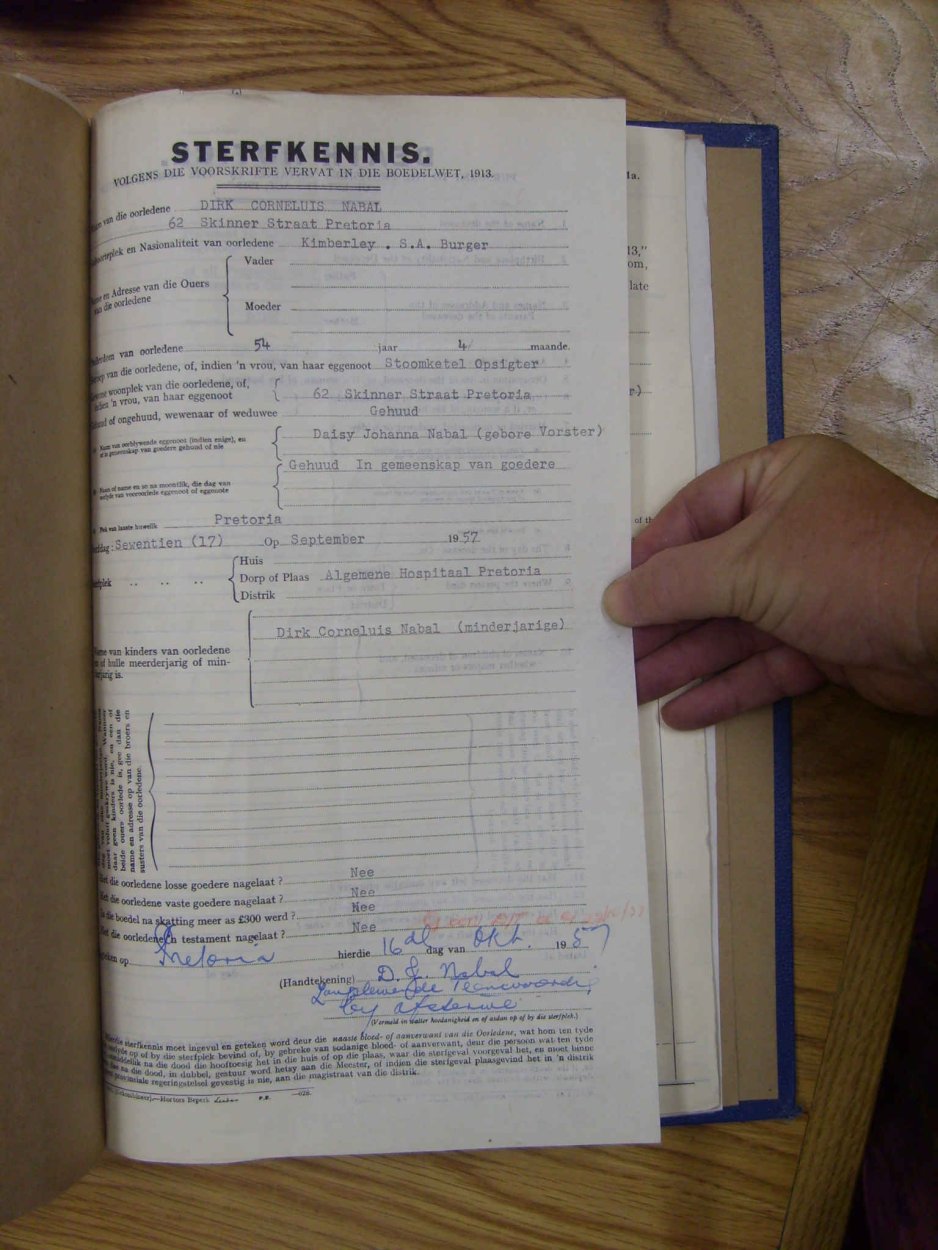 STERFKENNIS.
VOLGENS DIE VOORSKRIFTE VERVAT IN DIE BOEDELWET, 1913.
van die oorledene DIRK CORNELUIS NABAL
62 Skinner Straat Pretoria
en Nasionaliteit van oorledene Kimberley . S.A. Burger
Vader
en Adresse van die Ouers
van die oorledene
Moeder
van oorledene 54 jaar 4 maande.
van die oorledene, of, indien 'n vrou, van haar eggenoot Stoomketel Opsigter
woonplek van die oorledene, of,
indien 'n vrou, van haar eggenoot 62 Skinner Straat Pretoria
of ongehuud, wewenaar of weduwee Gehuud
Naam van oorblywende eggenoot (indien enige), en
of in gemeenskap van goedere gehuud of nie Daisy Johanna Nabal (gebore Vorster)
Gehuud In gemeenskap van goedere
Naam of name en so na moontlik, die dag van
van vooroorlede eggenoot of eggenote
Plek van laaste huwelik Pretoria
Sewentien (17) Op September 1957
Huis
Dorp of Plaas Algemene Hospitaal Pretoria
Distrik
Dirk Corneluis Nabal (minderjarige)
Name van kinders van oorledene
en of hulle meerderjarig of min-
is.
daar geen kinders is nie, en een of
beide ouers oorlede is, gee dan die
name en adresse op van die broers en
susters van die oorledene.
die oorledene losse goedere nagelaat ? Nee
die oorledene vaste goedere nagelaat ? Nee
die boedel na skatting meer as £300 werd ? Nee
die oorledene 'n testament nagelaat ? Nee
op Pretoria hierdie 16de dag van Okt. 1957
(Handtekening) D. J. Nabal
by afsterwe
(Vermeld in watter hoedanigheid en of aldan op of by die sterfplek.)
sterfkennis moet ingevul en geteken word deur die naaste bloed- of aanverwant van die Oorledene, wat hom ten tyde
op of by die sterfplek bevind of, by gebreke van sodanige bloed- of aanverwant, deur die persoon wat ten tyde
na die dood die hooftoesig het in die huis of op die plaas, waar die sterfgeval voorgeval het, en moet binne
na die dood, in dubbel, gestuur word hetsy aan die Meester, of indien die sterfgeval plaasgevind het in 'n distrik
provinsiale regeringsetel gevestig is nie, aan die magistraat van die distrik.
Hortors Beperk